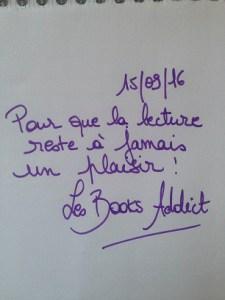 15/09/16
Pour que la lecture
reste à jamais
un plaisir !
Les Books Addict